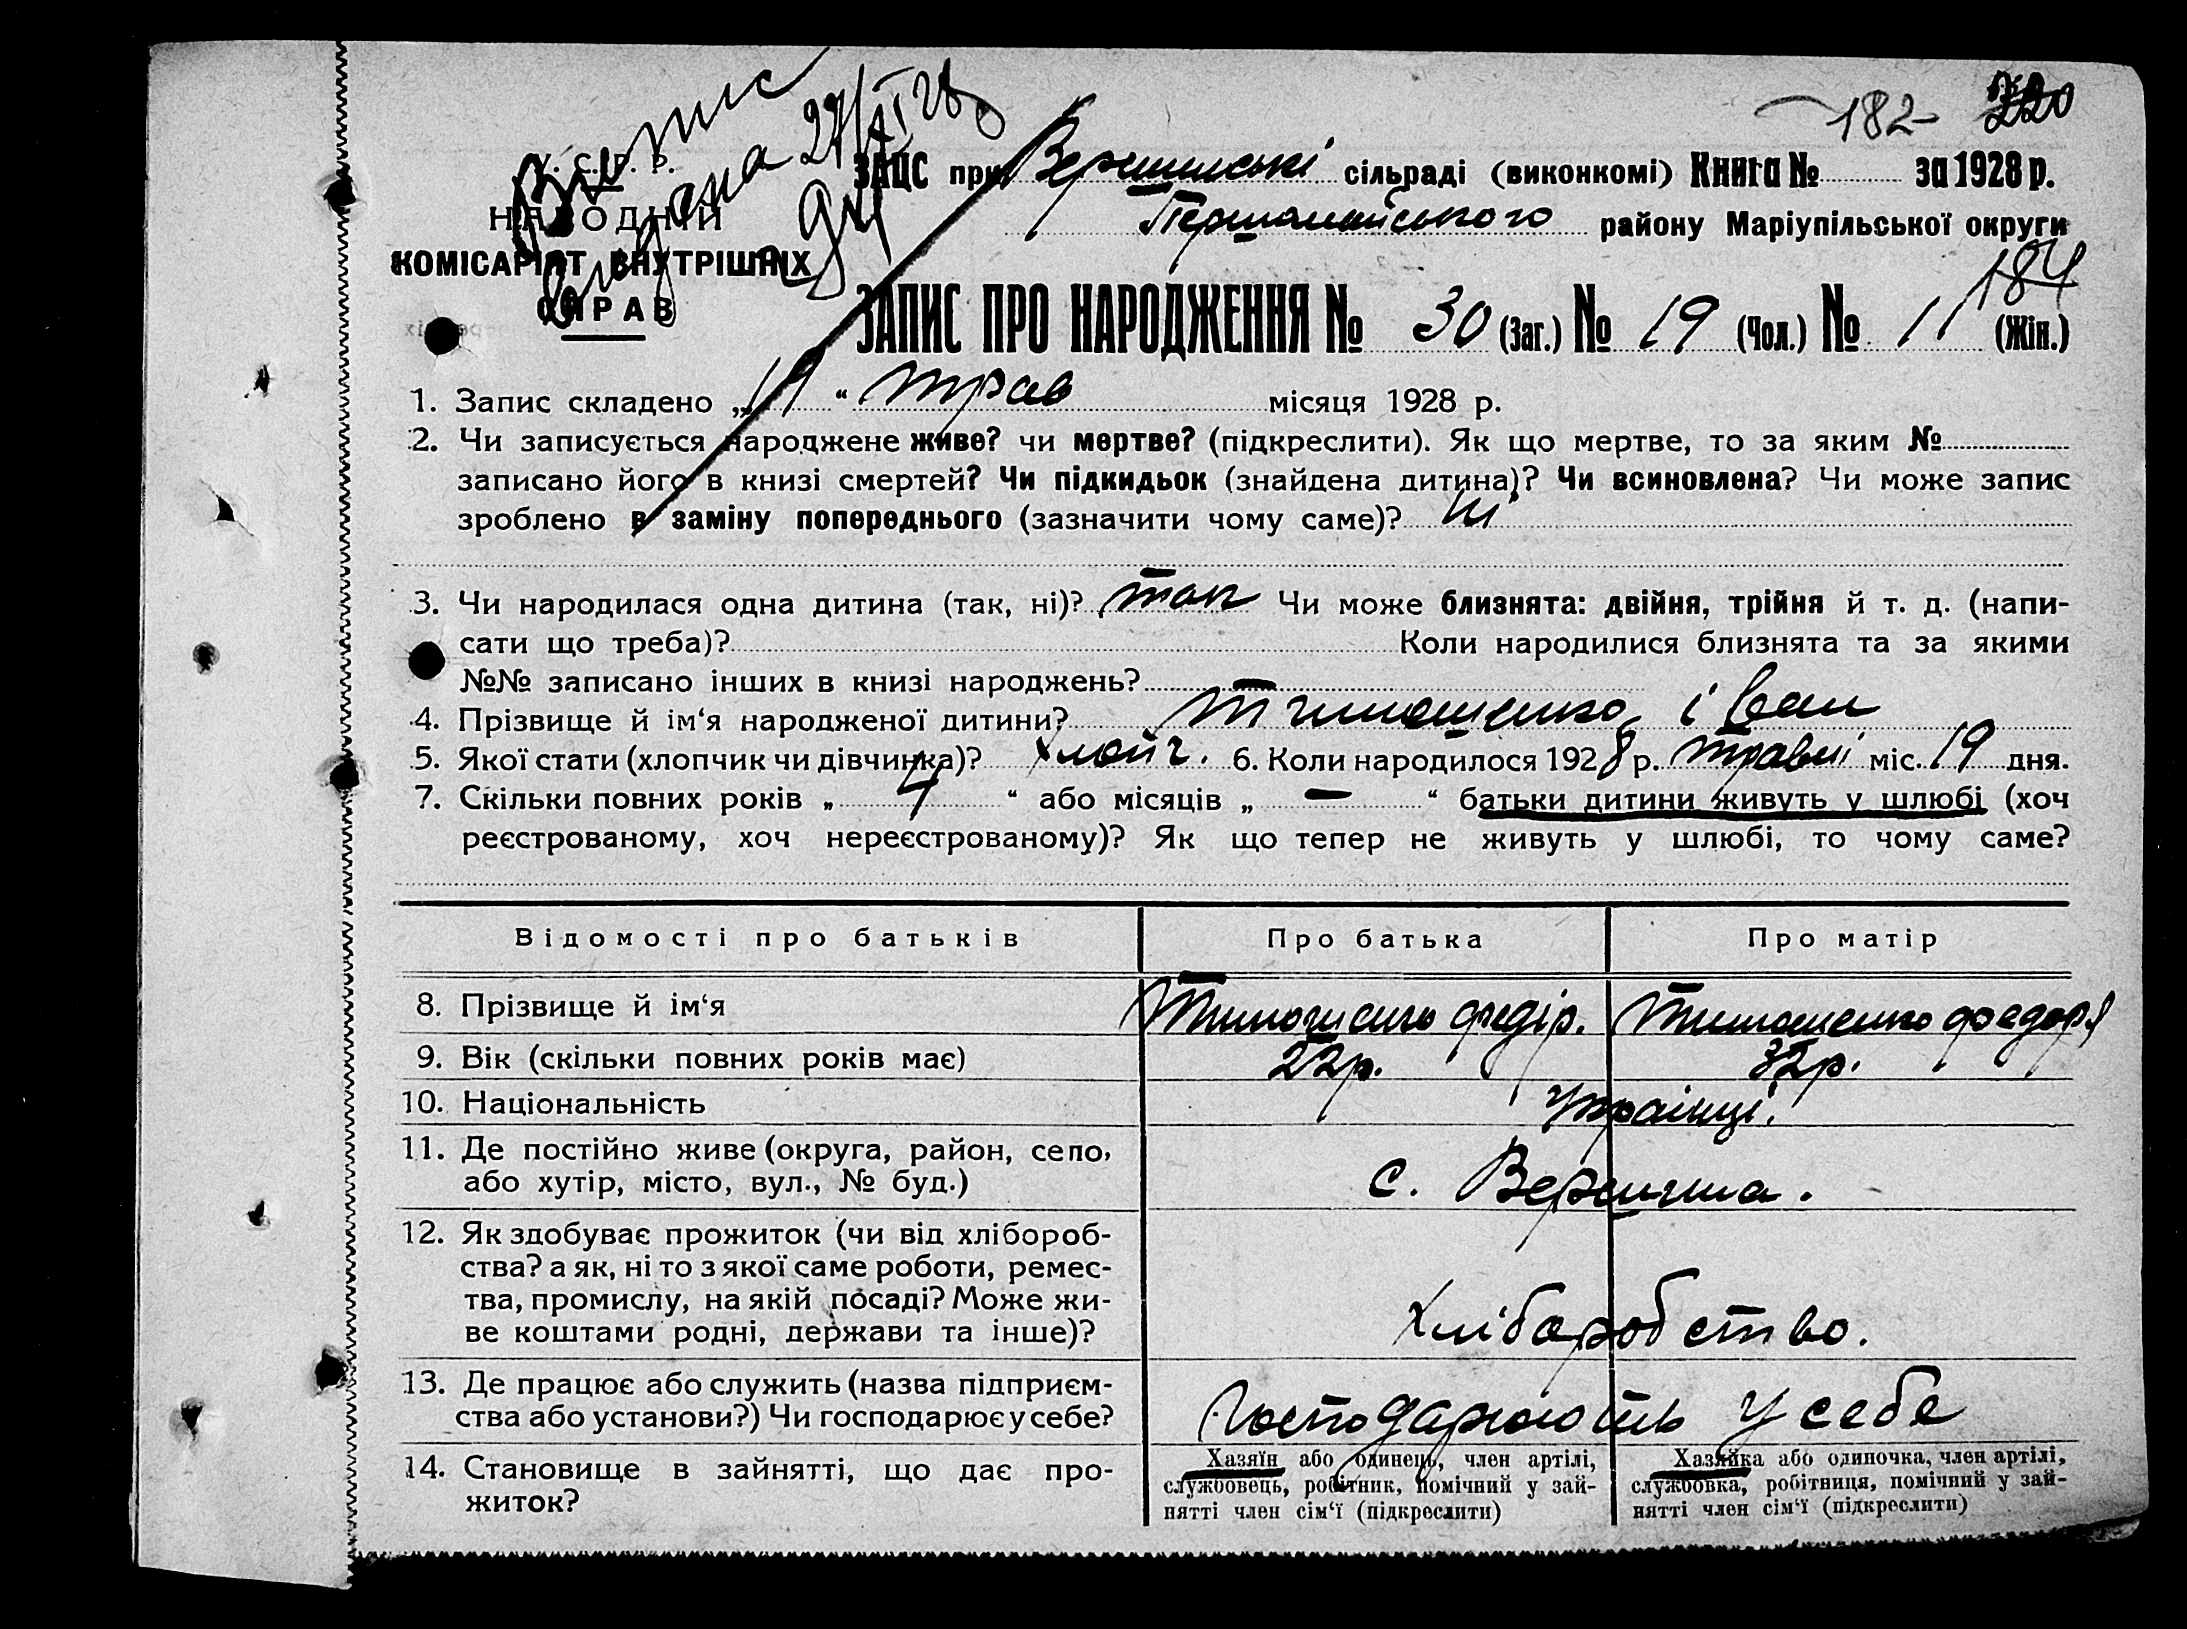 Випис
видана 27/XI 28
182 220
У. С. Р. Р.
НАРОДНІЙ
КОМІСАРІЯТ ВНУТРІШНІХ
СПРАВ
ЗАЦС при Вершинські сільраді (виконкомі) Книга № за 1928 р.
Першомайського району Маріупільської округи
184
ЗАПИС ПРО НАРОДЖЕННЯ № 30 (Заг.) № 19 (Чол.) № 11 (Жін.)
1. Запис складено „19“ трав місяця 1928 р.
2. Чи записується народжене живе? чи мертве? (підкреслити). Як що мертве, то за яким №
записано його в книзі смертей? Чи підкидьок (знайдена дитина)? Чи всиновлена? Чи може запис
зроблено в заміну попереднього (зазначити чому саме)? ні
3. Чи народилася одна дитина (так, ні)? так Чи може близнята: двійня, трійня й т. д. (напи-
сати що треба)? Коли народилися близнята та за якими
№№ записано інших в книзі народжень? —
4. Прізвище й ім‘я народженої дитини? Тимошенко Іван
5. Якої стати (хлопчик чи дівчинка)? хлопч. 6. Коли народилося 1928 р. травні міс. 19 дня.
7. Скільки повних років „ 4 “ або місяців „ — “ батьки дитини живуть у шлюбі (хоч
реєстрованому, хоч нереєстрованому)? Як що тепер не живуть у шлюбі, то чому саме?
Відомості про батьків Про батька Про матір
8. Прізвище й ім‘я Тимошенко Федір. Тимошенко Федора
9. Вік (скільки повних років має) 22р. 32р.
10. Національність Українці.
11. Де постійно живе (округа, район, село,
або хутір, місто, вул., № буд.) с. Вершина.
12. Як здобуває прожиток (чи від хлібороб-
ства? а як, ні то з якої саме роботи, ремес-
тва, промислу, на якій посаді? Може жи-
ве коштами родні, держави та інше)? Хліборобство.
13. Де працює або служить (назва підприєм-
ства або установи?) Чи господарює у себе? Господарюють у себе
14. Становище в зайнятті, що дає про-
житок?
Хазяїн або одинець, член артілі,
службовець, робітник, помічний у зай-
нятті член сім‘ї (підкреслити)
Хазяйка або одиночка, член артілі,
службовка, робітниця, помічний у зай-
нятті член сім‘ї (підкреслити)